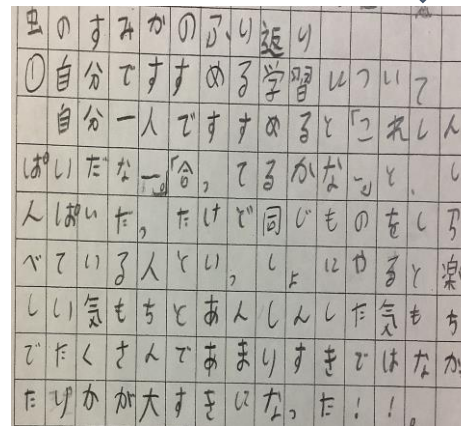 虫のすみかのふり返り
①自分ですすめる学習について
自分一人ですすめると「これしん
ぱいだなー。」「合ってるかなー。」と、し
んぱいだったけど同じものをしら
べている人といっしょにやると楽
しい気もちとあんしんした気もち
でたくさんであまりすきではなか
たりかが大すきになった!!。